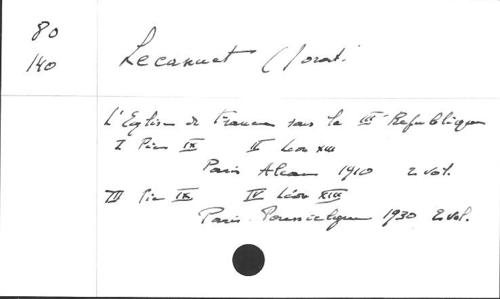 80
140
Lecanuet (Sorat.
L'Eglise de France sous la IIIe République
I Pie IX II Léon XIII
Paris Alcan 1910 2 vol.
III Pie IX IV Léon XIII
Paris. 1930 2 vol.